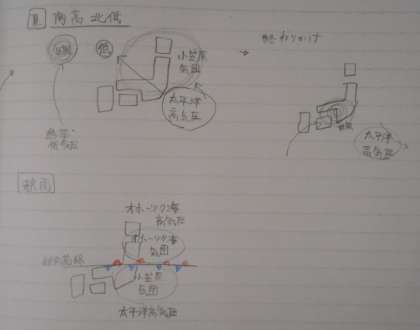 夏 南高北低
低
小笠原
気団
太平洋
高気圧
熱帯
低気圧
終わりかけ
太平洋
高気圧
秋雨
オホーツク海
高気圧
オホーツク海
気団
小笠原
気団
太平洋高気圧